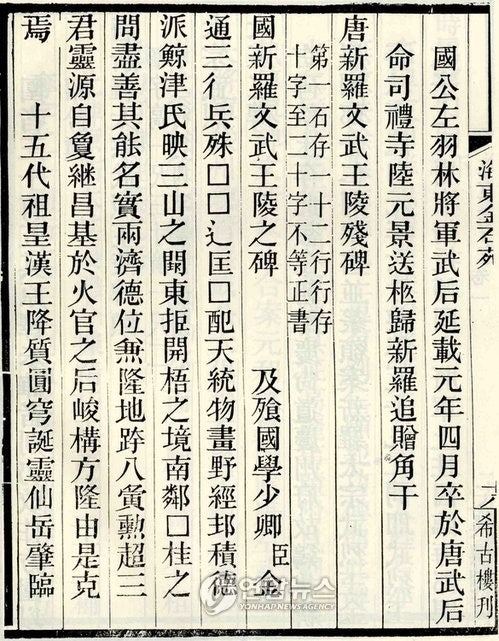 海東金石苑
希古樓刊
國公左羽林將軍武后延載元年四月卒於唐武后
命司禮寺陸元景送柩歸新羅追贈角干
唐新羅文武王陵殘碑
第一石存一十二行行存
十字至二十字不等正書
國新羅文武王陵之碑 及飡國學少卿臣金
通三彳兵殊□□辶匡□配天統物畫野經邦積德
派鯨津氏映三山之闕東拒開梧之境南鄰□桂之
問盡善其能名實兩濟德位兼隆地跨八夤勳超三
君靈源自敻継昌基於火官之后峻構方隆由是克
焉 十五代祖星漢王降質圓穹誕靈仙岳肇臨
연합뉴스
YONHAP NEWS AGENCY